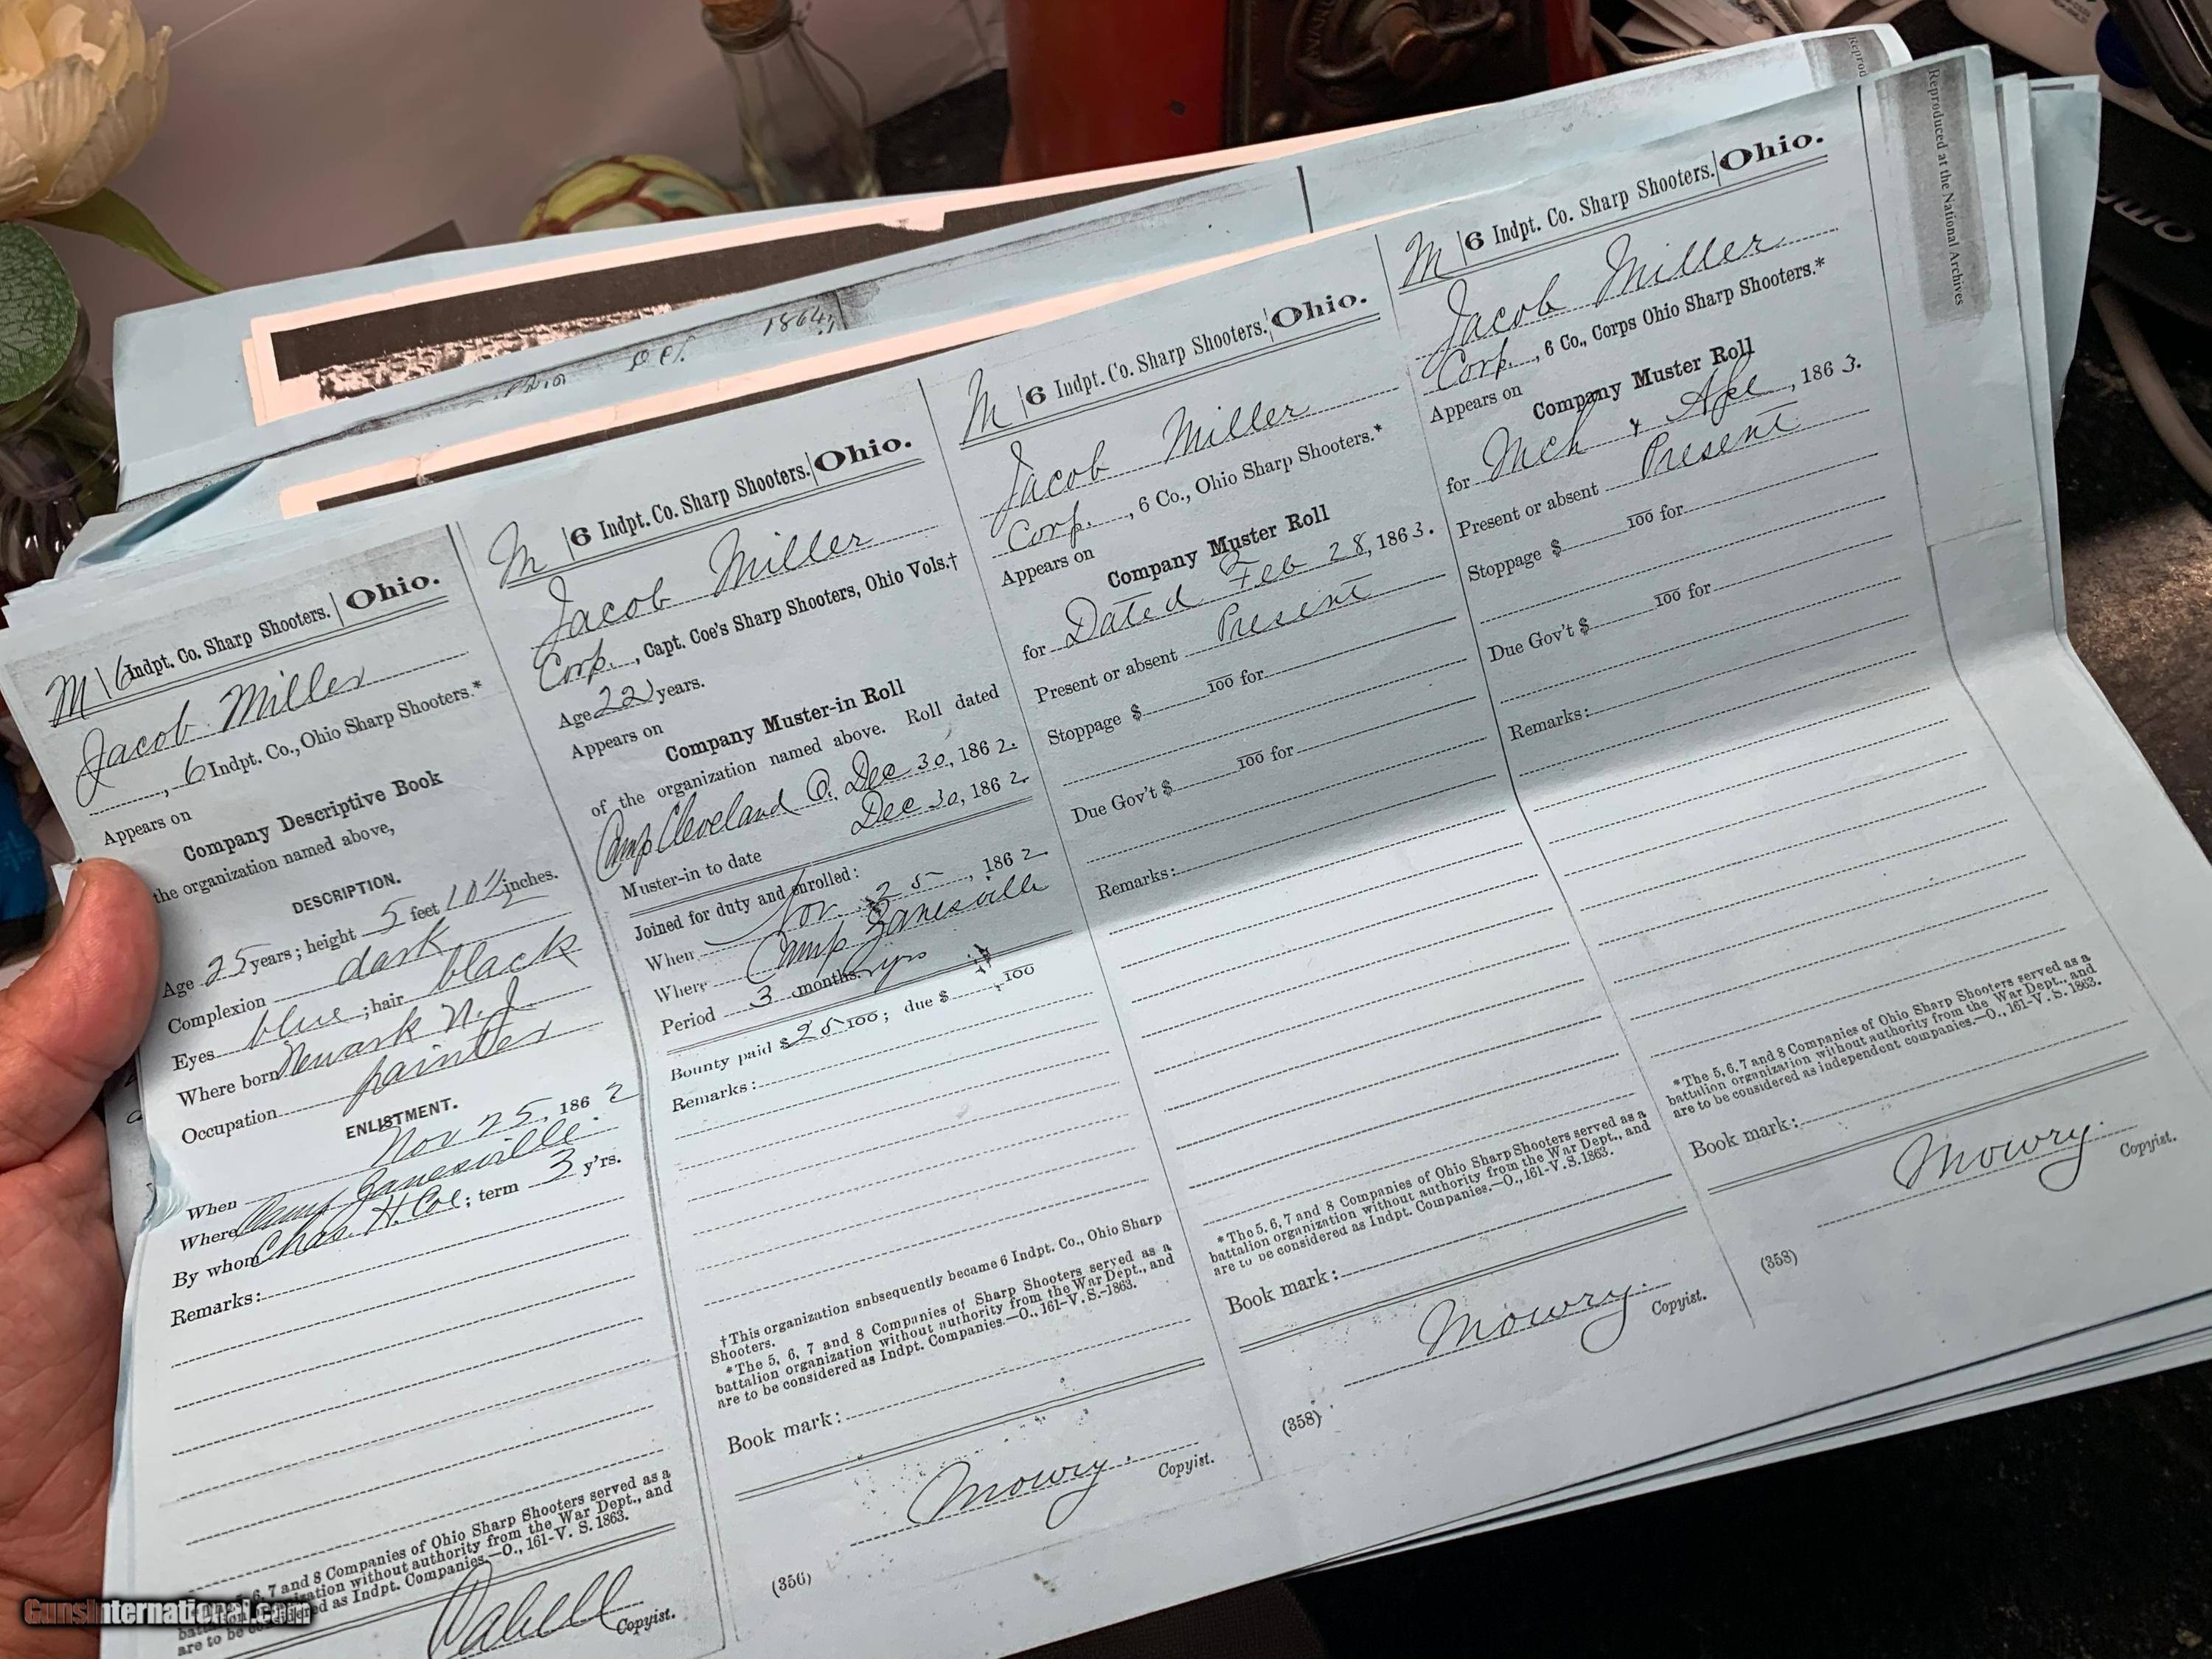 Reprod
Reproduced at the National Archives
Oct. 1864
M | 6 Indpt. Co. Sharp Shooters. | Ohio.
Jacob Miller
, 6 Indpt. Co., Ohio Sharp Shooters.*
Appears on
Company Descriptive Book
the organization named above,
DESCRIPTION.
Age 25 years; height 5 feet 10½ inches.
Complexion dark
Eyes blue; hair black
Where born Newark N.J.
Occupation painter
ENLISTMENT.
When Nov 25, 1862
Where Camp Zanesville.
By whom Chas. H. Coe; term 3 y'rs.
Remarks:
6, 7 and 8 Companies of Ohio Sharp Shooters served as a
organization without authority from the War Dept., and
are to be considered as Indpt. Companies.—O., 161-V. S. 1863.
Copyist.
M | 6 Indpt. Co. Sharp Shooters. | Ohio.
Jacob Miller
Corp., Capt. Coe's Sharp Shooters, Ohio Vols.†
Age 22 years.
Appears on
Company Muster-in Roll
of the organization named above. Roll dated
Camp Cleveland O., Dec 30, 1862.
Muster-in to date Dec 30, 1862.
Joined for duty and enrolled:
When Nov. 25, 1862
Where Camp Zanesville
Period 3 months. yrs
Bounty paid $25 100; due $ 100
Remarks:
†This organization snbsequently became 6 Indpt. Co., Ohio Sharp
Shooters.
*The 5, 6, 7 and 8 Companies of Sharp Shooters served as a
battalion organization without authority from the War Dept., and
are to be considered as Indpt. Companies.—O., 161-V. S.-1863.
Book mark:
Mowry. Copyist.
(356)
M | 6 Indpt. Co. Sharp Shooters. | Ohio.
Jacob Miller
Corp., 6 Co., Ohio Sharp Shooters.*
Appears on
Company Muster Roll
for Dated Feb 28, 1863.
Present or absent Present
Stoppage $ 100 for
Due Gov't $ 100 for
Remarks:
*The 5, 6, 7 and 8 Companies of Ohio Sharp Shooters served as a
battalion organization without authority from the War Dept., and
are to be considered as Indpt. Companies.—O., 161-V. S. 1863.
Book mark:
Mowry. Copyist.
(358)
M | 6 Indpt. Co. Sharp Shooters. | Ohio.
Jacob Miller
Corp., 6 Co., Corps Ohio Sharp Shooters.*
Appears on
Company Muster Roll
for Mch & Apl, 1863.
Present or absent Present
Stoppage $ 100 for
Due Gov't $ 100 for
Remarks:
*The 5, 6, 7 and 8 Companies of Ohio Sharp Shooters served as a
battalion organization without authority from the War Dept., and
are to be considered as independent companies.—O., 161-V. S. 1863.
Book mark:
Mowry. Copyist.
(358)
GunsInternational.com